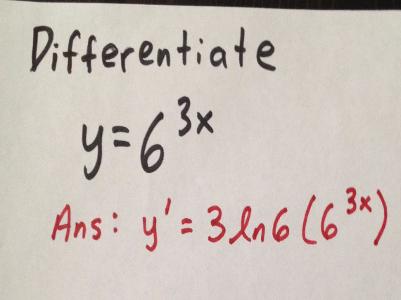 Differentiate
y=6^{3x}
Ans: y' = 3 ln 6 (6^{3x})